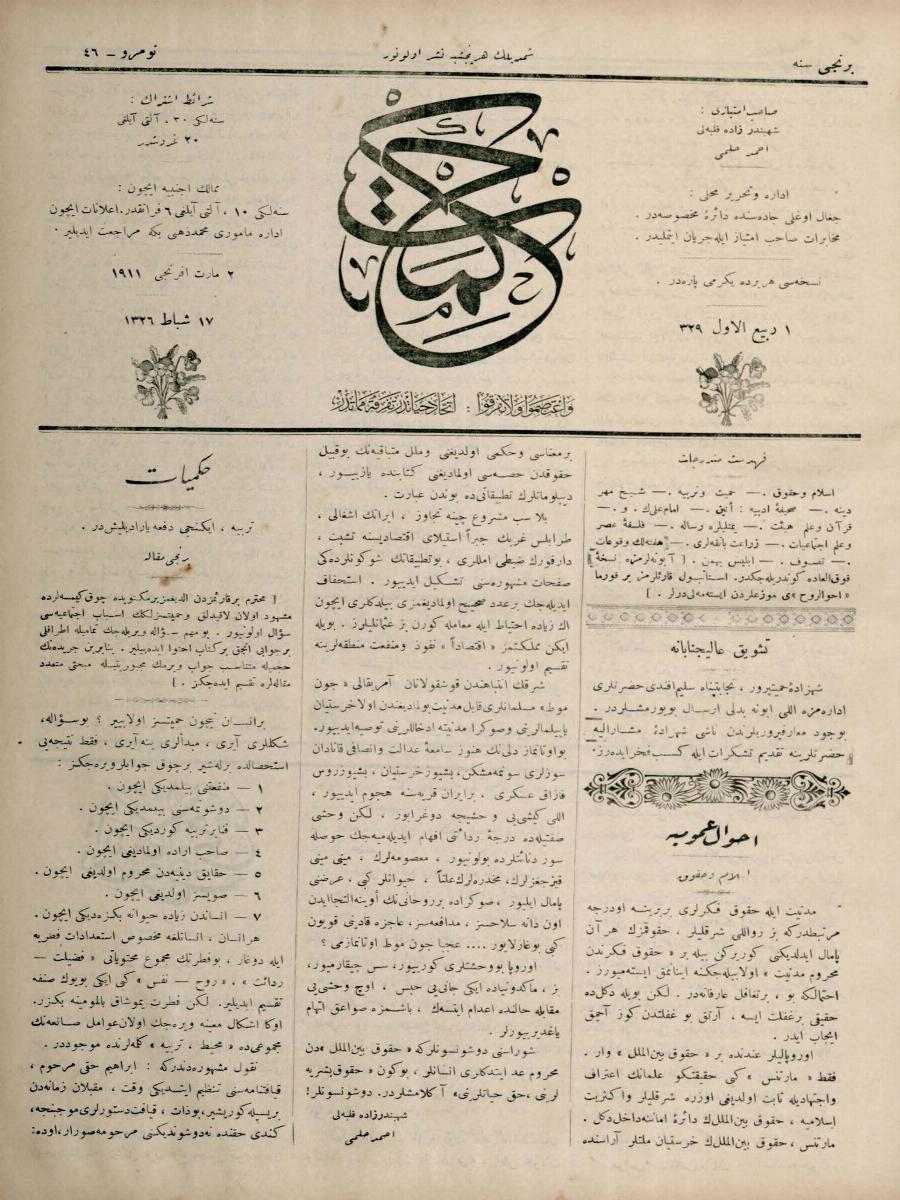 برنجی سنه
شمدیلك هر پنجشبه نشر اولونور
نومرو – ٤٦
صاحب امتیازی :
شهبندر زاده فلبه‌لی
احمد حلمی
اداره وتحریر محلی :
جغال اوغلی جاده‌سنده دائرهٔ مخصوصه‌در .
مخابرات صاحب امتیاز ایله جریان ایتملیدر .
نسخه‌سی هر یرده یكرمی پاره‌در .
١ ربیع الاول ٣٢٩
حكمت
واعتصموا ولا تفرقوا : اتحاد حیاتدر تفرقه مماتدر
شرائط اشتراك :
سنه‌لكی ٣٠ ، آلتی آیلغی
٢٠ غروشدر
ممالك اجنبیه ایچون :
سنه‌لكی ١٠ ، آلتی آیلغی ٦ فرانقدر. اعلانات ایچون
اداره ماموری محمد ذهنی بكه مراجعت ایدیلیر .
٢ مارت افرنجی ١٩١١
١٧ شباط ١٣٢٦
فهرست مندرجات
اسلام وحقوق .— حمیت وتربیه .— شیخ مهر
دینه .— صحیفهٔ ادبیه : أنین .— امام علی‌ك . و .—
قرآن وعلم هیئت .— یمنلیلره رساله .— فلسفهٔ عصر
وعلم اجتماعیات .— زراعت بانقه‌لری .— هفته‌لك وقوعات
.— تصوف .— ابلیس بهمن . [ آبونه‌لرمزه نسخهٔ
فوق العاده كوندریله‌جكدر. استانبول قارئلرمز بر فورما
« احوال روح » ی موزعلردن ایسته‌ملی‌درلر . ]
تشویق عالیجنابانه
شهزادهٔ حمیتپرور ، نجابتپناه سلیم افندی حضرتلری
اداره‌مزه اللی ابونه بدلی ارسال بویورمشلردر .
بوجود معارفپرورلرندن ناشی شهزادهٔ مشارالیه
حضرتلرینه تقدیم تشكرات ایله كسب فخر ایده‌رز.
احوال عمومیه
اسلام وحقوق
مدنیت ایله حقوق فكرلری بربرینه اودرجه
مرتبطدركه بز زواللی شرقلیلر ، حقوقمزك هر آن
پامال ایدلدیكنی كوررکن بیله بر « حقوق فكرندن
محروم مدنیت » اولابیله‌جكنه اینانمق ایسته‌میورز .
احتمالكه بو ، برتغافل عارفانه‌در . لكن بویله دكل‌ده
حقیقی برغفلت ایسه ، آرتق بو غفلتدن كوز آچمق
ایجاب ایدر .
اوروپالیلر عندنده بر « حقوق بین‌الملل » وار .
فقط « مارتنس » كبی حقیقتكو علمانك اعتراف
واجتهادیله ثابت اولدیغی اوزره شرقلیلر واكثریت
اسلامیه ، حقوق بین‌المللك دائرهٔ امانته داخل دكل .
مارتنس ، حقوق بین‌المللك خرستیان ملتلر آراسنده
برمعناسی وحكمی اولدیغنی وملل متباقیه‌نك بوقبیل
حقوقدن حصه‌سی اولمادیغنی كتابنده یازیيور ،
دیپلوماتلرك تطبیقاتی‌ده بوندن عبارت .
بلا سبب مشروع چینه تجاوز ، ایرانك اشغالی ،
طرابلس غربك جبراً استیلای اقتصادیسنه تشبث ،
دارفورك ضبطی املاری ، بوتطبیقاتك شوكونلرده‌كی
صفحات مشهوره‌سنی تشكیل ایدییور . استخفاف
ایدیله‌جك برعدد صحیح اولمادیغمزی بیله‌كلری ایچون
اك زیاده احتیاط ایله معامله كورن بز عثمانلیلرز . بویله
ایكن مملكتمز « اقتصاداً » نفوذ ومنفعت منطقه‌لرینه
تقسیم اولونیور .
شرقك انتباهندن قوشقولانان آمریقالی « جون
موط » مسلمانلری قابل مدنیت بولمادیغندن اولا خرستیان
یاپیلمالرینی وصوكرا مدنیته ادخاللرینی توصیه ایدییور.
بواوتانماز دلی‌نك هنوز سامعهٔ عدالت وانصافی قانادان
سوزلری سونمه‌مشكن، بشیوز خرستیان ، بشیوز روس
قازاق عسكری . برایران قریه‌سنه هجوم ایدییور ،
اللی كیشی‌یی و حشیجه دوغرایور ، لكن وحشی
صفتیله‌ده درجهٔ ردائتی افهام ایدیله‌میه‌جك حوصله
سوز دنائتلرده بولونیور ، معصومه‌لرك ، مینی مینی
قیزجغزلرك، مخدره‌لرك علناً ، حیوانلر كبی ، عرضنی
پامال ایلیور ، صوكراده برروحانی‌نك أوینه التجا ایدن
اون دانه سلاحسز ، مدافعه‌سز، عاجزه قادینی قویون
كبی بوغازلایور .... عجبا جون موط اوتانمازمی ؟
اوروپا بووحشتلری كورییور، سس چیقارمیور،
بز ، ماكدونیاده ایكی جانی‌یی حبس ، اوچ وحشی‌یی
مقابله حالنده اعدام ایتسه‌ك ، باشمزه صواعق اتهام
یاغدیریورلر .
شوراسنی دوشونسونلركه « حقوق بین‌الملل » دن
محروم عد ایتدكلری انسانلر ، بوكون « حقوق بشریه
لرینی ، حق حیاتلرینی » آ كلامشلردر. دوشونسونلر!
شهبندرزاده فلبه‌لی
احمد حلمی
حكمیات
تربیه ، ایكنجی دفعه یارادیلیش‌در .
برنجی مقاله
[ محترم برقارئمزدن آلدیغمز برمكتوبده چوق كیمسه‌لرده
مشهود اولان لاقیدلق وحمیتسزلكك اسباب اجتماعیه‌سی
سؤال اولونیور . بو مهم سؤاله ویریله‌جك تمامیله اطرافلی
برجوابی انجق بركتاب احتوا ایده‌بیلیر . بنابرین جریده‌نك
حجمیله متناسب جواب ویرمك مجبوریتیله مبحثی متعدد
مقاله‌لره تقسیم ایده‌جكز . ]
برانسان نیچون حمیتسز اولابیلیر ؟ بوسؤاله،
شكللری آیری ، مبدألری ینه آیری ، فقط نتیجه‌یی
استحصالده برله‌شیر برچوق جوابلر ویره‌جكز :
١ — منفعتنی بیلمدیكی ایچون .
٢ — دوشونمه‌سنی بیلمدیكی ایچون .
٣ — فنا برتربیه كوردیكی ایچون .
٤ — صاحب اراده اولمادیغی ایچون .
٥ — حقایق دینیه‌دن محروم اولدیغی ایچون .
٦ — صویسز اولدیغی ایچون .
٧ — انساندن زیاده حیوانه بكزه‌دیكی ایچون .
هر انسان ، انسانلغه مخصوص استعدادات فطریه
ایله دوغار ، بوفطرتك مجموع محتویاتی « فضیلت —
ردائت » ، « روح — نفس » كبی ایكی بویوك صنفه
تقسیم ایدیلیر. لكن فطرت یموشاق بالمومینه بكزر.
اوكا اشكال معینه ویره‌جك اولان عوامل صانعه‌نك
مجموعی‌ده « محیط ، تربیه » كله‌لرنده موجوددر .
نقول مشهوره‌دندركه : ابراهیم حقی مرحوم ،
قیافتنامه‌سنی تنظیم ایتدیكی وقت ، مقبلان زمانه‌دن
بریسیله كوریشیر، بوذات ، قیافت دستورلری موجبنجه،
كندی حقنده نه‌دوشوندیكنی مرحومه صورار، اوده: